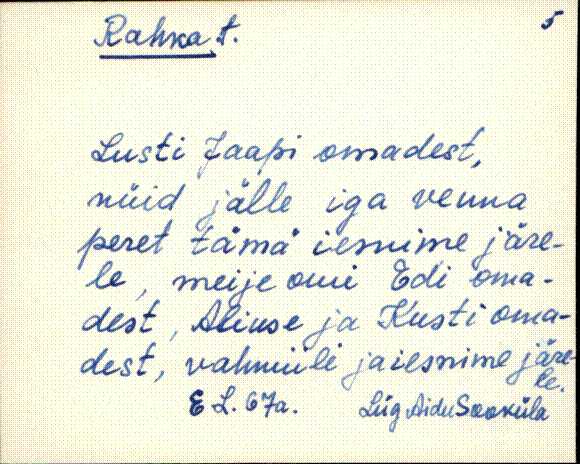 Rahka t.
5
Lusti Jaapi omadest,
nüid jälle iga venna
peret tämä iesnime järe-
le, meije omi Edi oma-
dest, Aliuse ja Kusti oma-
dest, vahnüili ja iesnime järe-
le.
E L. 67a. Lüg Aidu Sooküla